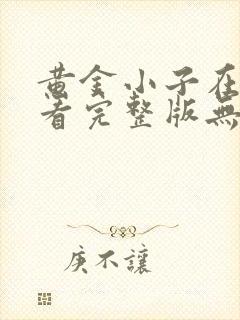 黄金小子在
看完整版無
庚不讓